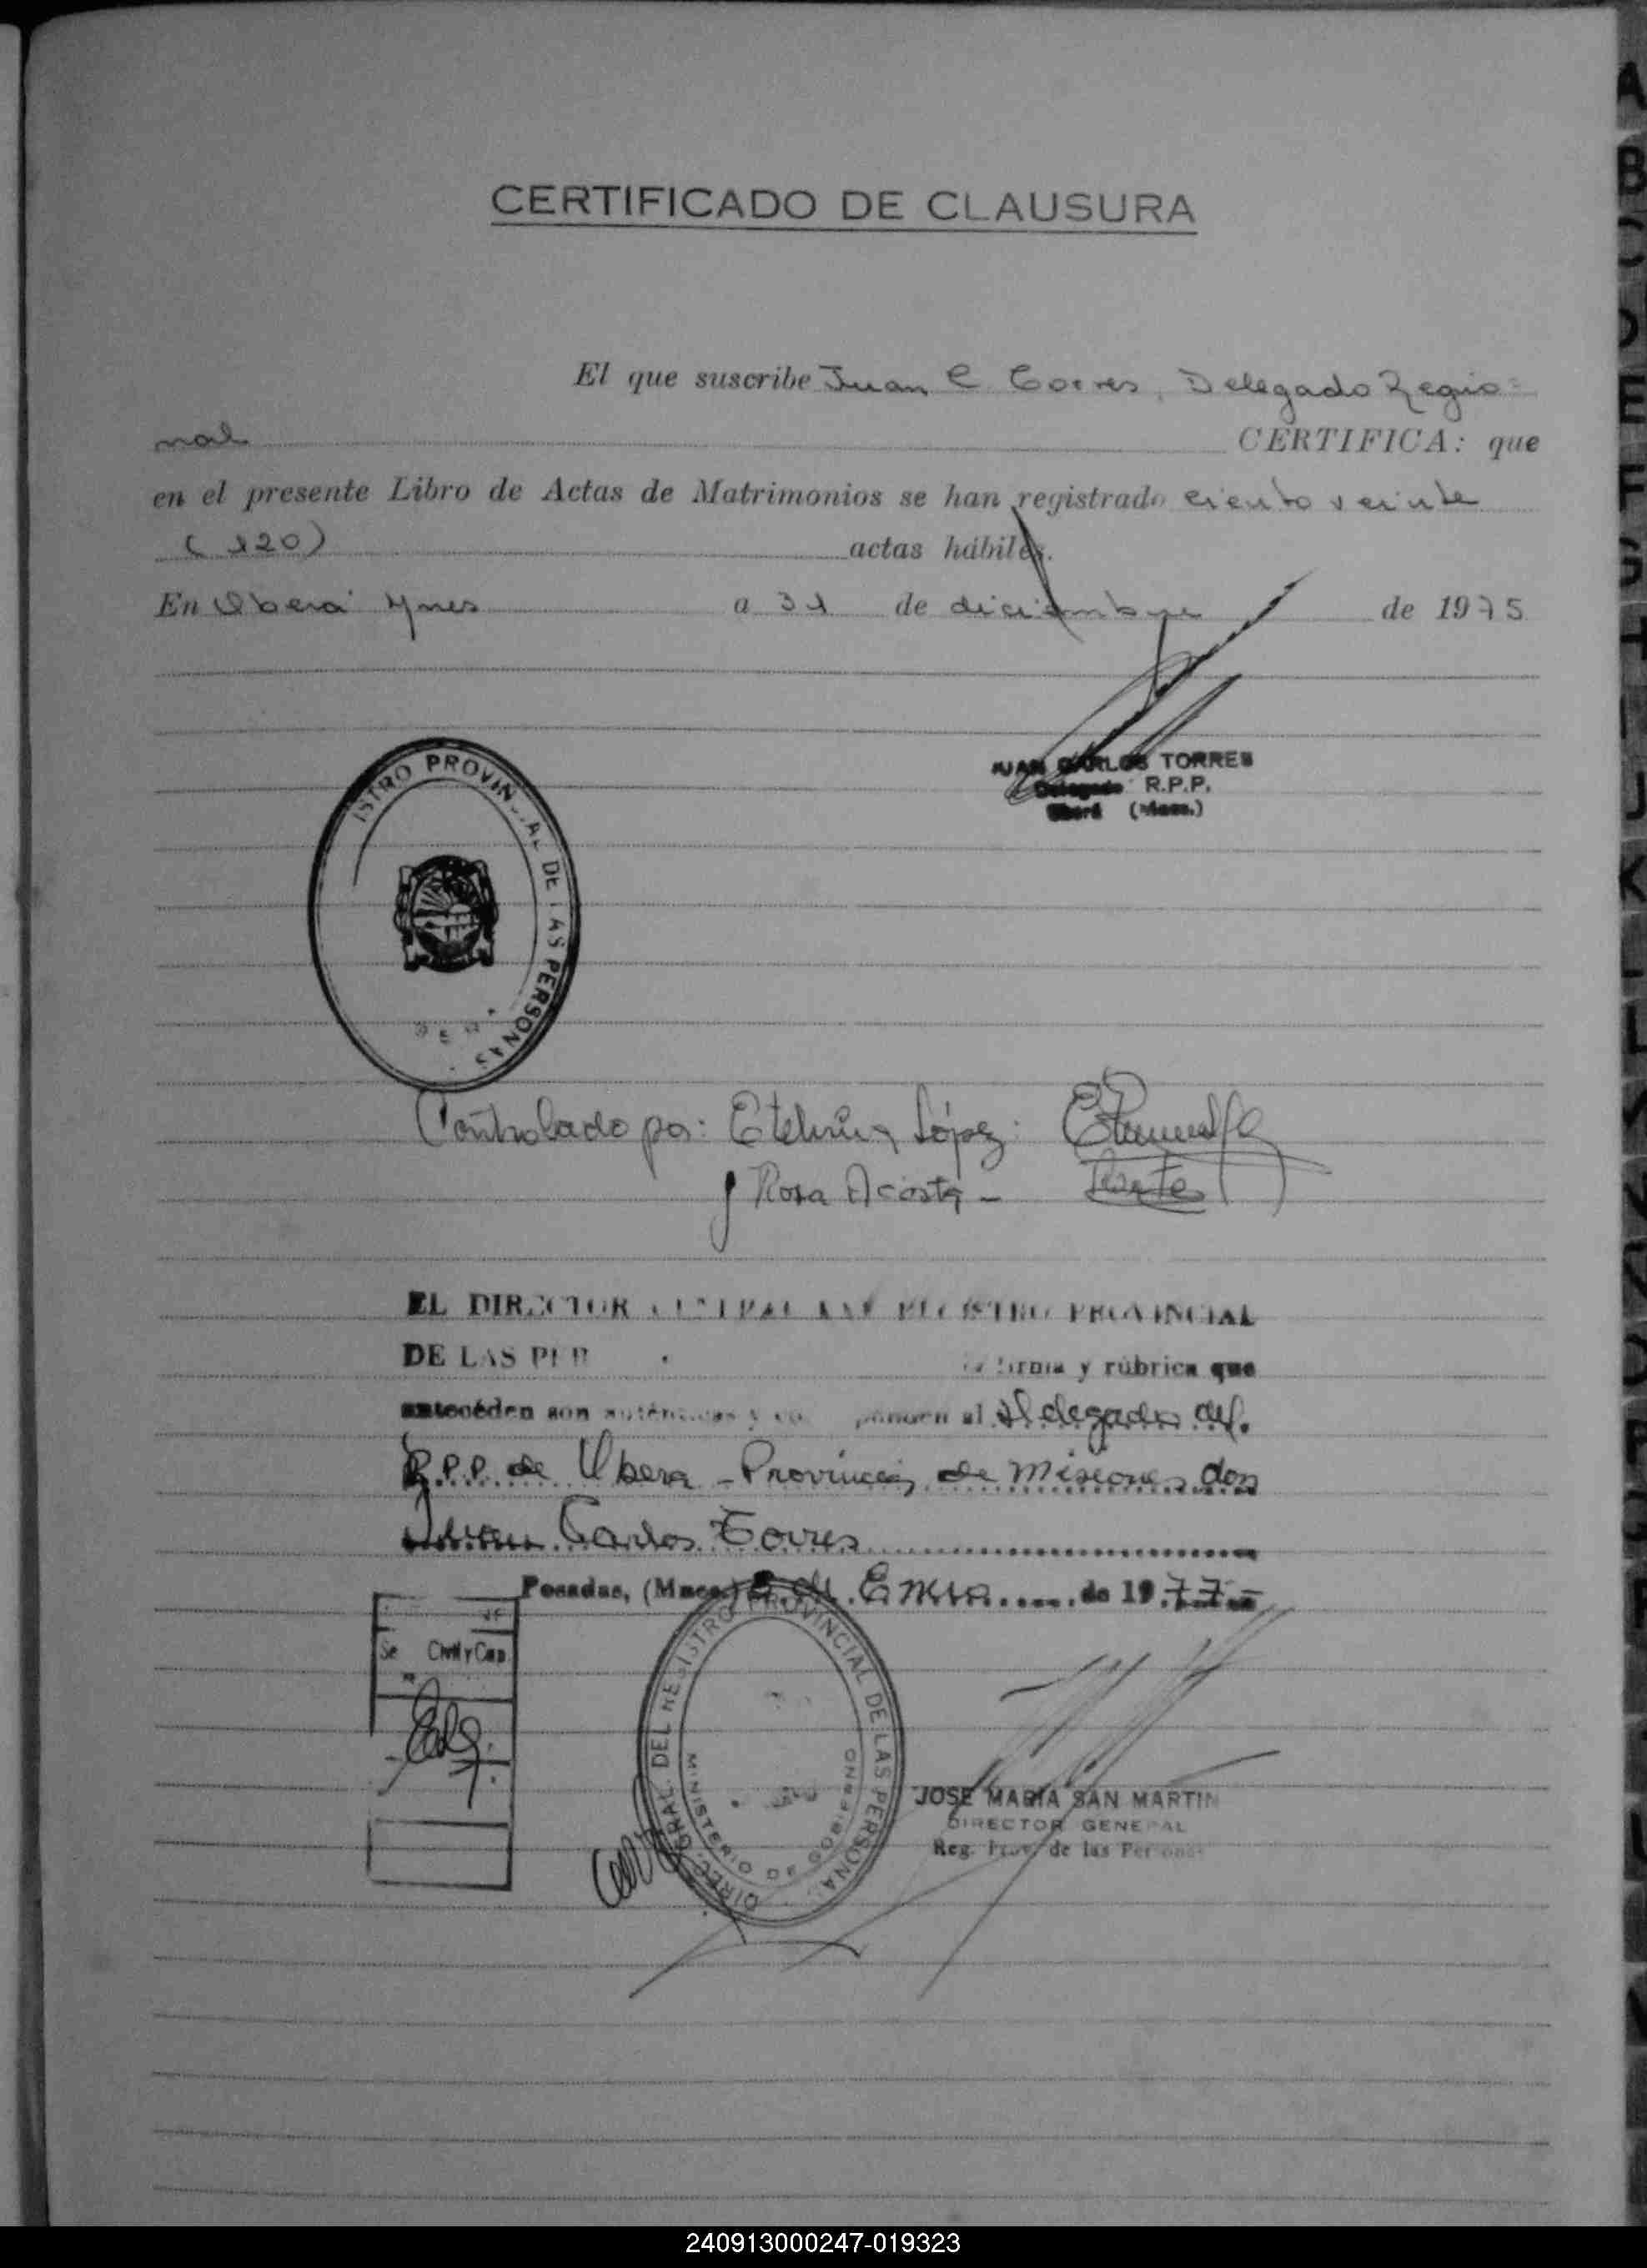 CERTIFICADO DE CLAUSURA
El que suscribe Juan C Torres, Delegado Regio=
nal CERTIFICA: que
en el presente Libro de Actas de Matrimonios se han registrado ciento veinte
(120) actas hábiles.
En Oberá Mnes a 31 de diciembre de 1975
JUAN CARLOS TORRES
Delegado R.P.P.
Oberá (Mnes.)
ISTRO PROVINCIAL DE LAS PERSONAS
Controlado por: Etelvina López
y Rosa Acosta -
EL DIRECTOR REGISTRO PROVINCIAL
DE LAS PER firma y rúbrica que
anteceden son auténticas y ponden al delegado del
R.P.P. de Oberá - Provincia de Misiones don
Juan Carlos Torres
Posadas, (Mnes.) Enero de 1977
Se Civil y Cap
DIREC. GRAL. DEL REGISTRO PROVINCIAL DE LAS PERSONAS
MINISTERIO DE GOBIERNO
JOSE MARIA SAN MARTIN
DIRECTOR GENERAL
Reg. Prov. de las Personas
240913000247-019323